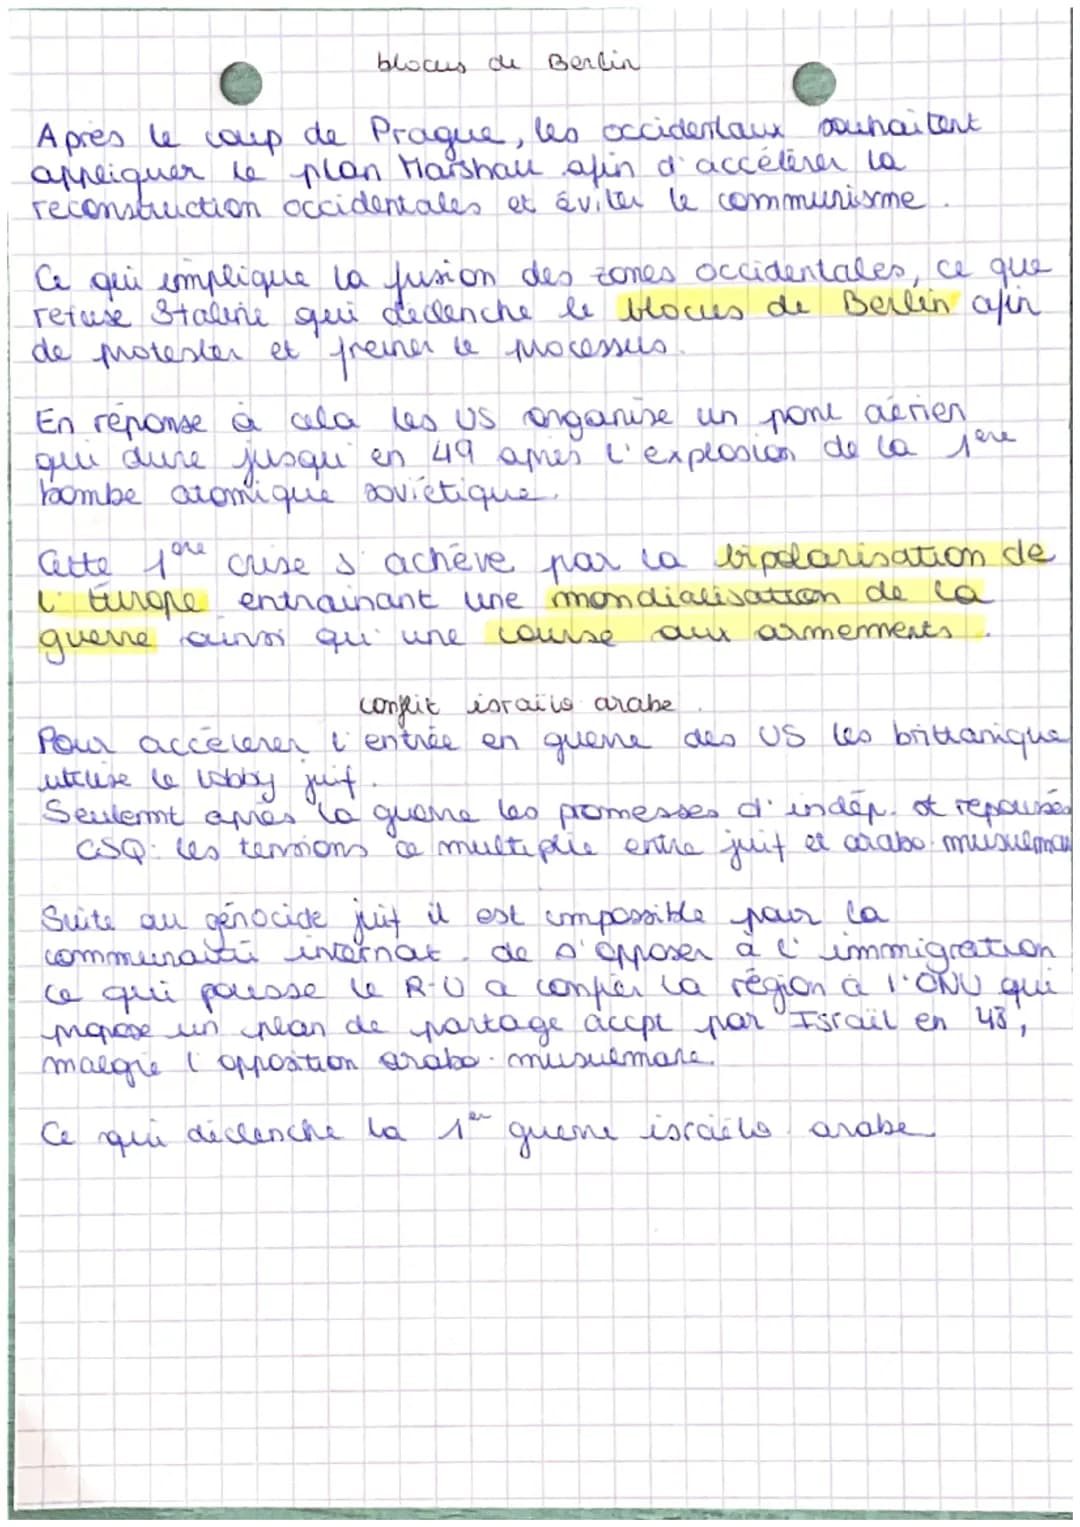 blocus de Berlin
Après le coup de Prague, les occidentaux souhaitent
appliquer le plan Marshall afin d'accélérer la
reconstruction occidentales et éviter le communisme.
Ce qui implique la fusion des zones occidentales, ce que
refuse Staline qui déclenche le blocus de Berlin afin
de protester et freiner le processus.
En réponse à cela les US organise un pont aérien
qui dure jusqu'en 49 après l'explosion de la 1ère
bombe atomique soviétique.
Cette 1ère crise s'achève par la bipolarisation de
l'Europe entrainant une mondialisation de la
guerre ainsi qu'une course aux armements.
conflit israélo arabe.
Pour accélerer l'entrée en guerre des US les brittanique
utilise le lobby juif.
Seulemt après la guerre les promesses d'indép. st repoussés
CSQ: les tensions ce multiplie entre juif et arabo-musulman
Suite au génocide juif il est impossible pour la
communauté internat. de s'opposer à l'immigration
ce qui pousse le R-U a confier la région à l'ONU qui
propose un plan de partage accpt par Israïl en 48,
malgré l'opposition arabo-musulmane.
Ce qui déclenche la 1er guerre israélo-arabe